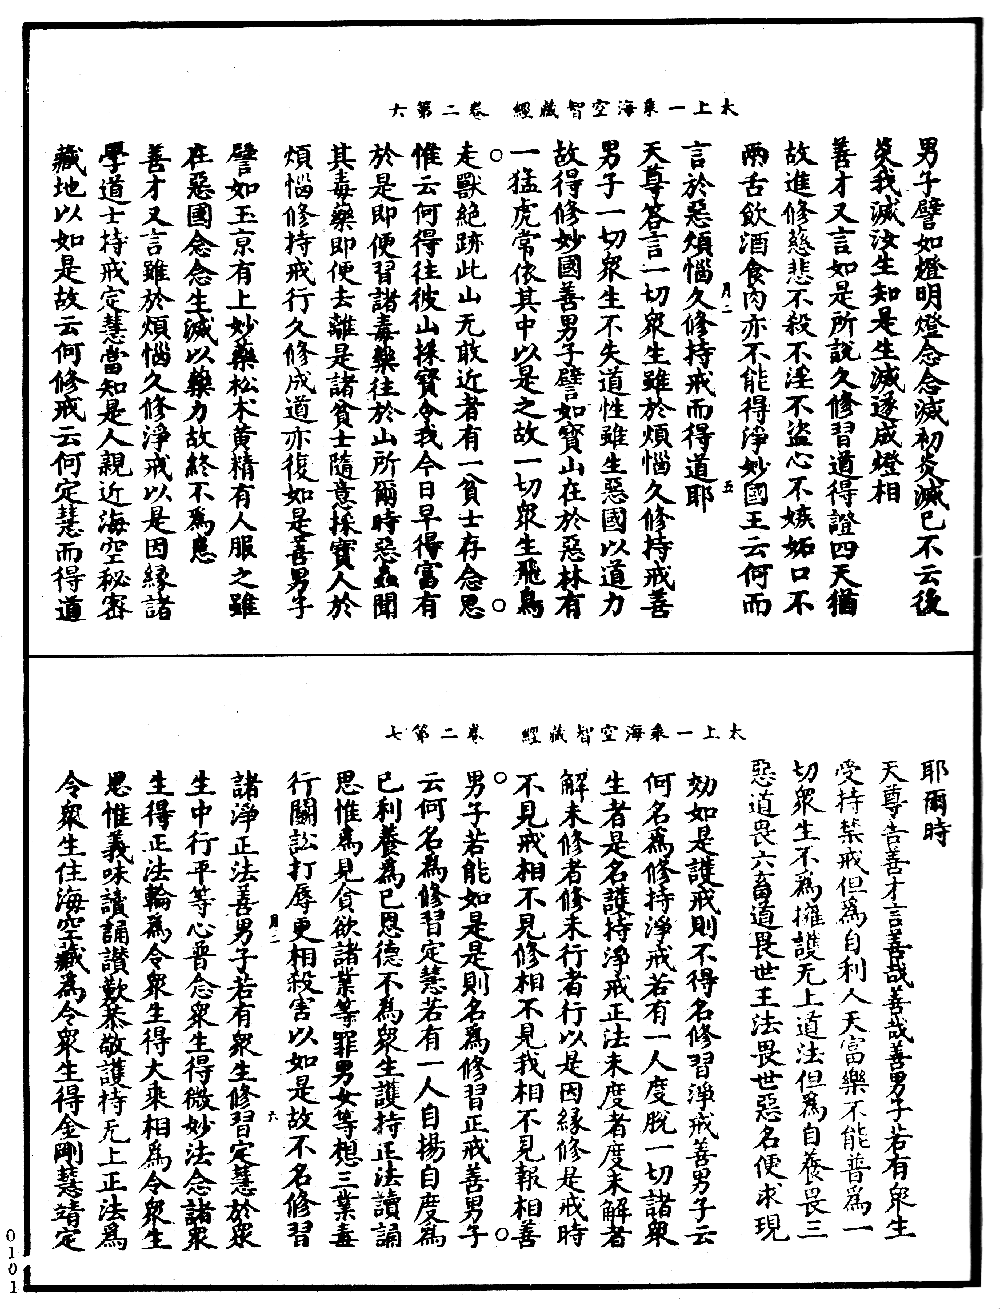 太上一乘海空智藏經　卷二第六
男子譬如燈明燈念念滅初炎滅已不云後
炎我滅汝生知是生滅遂成燈相
善才又言如是所說久修習道得證四天猶
故進修慈悲不殺不淫不盜心不嫉妬口不
兩舌飲酒食肉亦不能得淨妙國王云何而
月二
五
言於惡煩惱久修持戒而得道耶
天尊答言一切衆生雖於煩惱久修持戒善
男子一切衆生不失道性雖生惡國以道力
故得修妙國善男子譬如寶山在於惡林有
一猛虎常依其中以是之故一切衆生飛鳥
走獸絕跡此山无敢近者有一貧士存念思
惟云何得往彼山採寶令我今日早得富有
於是即便習諸毒藥往於山所爾時惡蟲聞
其毒藥即便去離是諸貧士隨意採寶人於
煩惱修持戒行久修成道亦復如是善男子
譬如玉京有上妙藥松木黄精有人服之雖
在惡國念念生滅以藥力故終不爲患
善才又言雖於煩惱久修淨戒以是因緣諸
學道士持戒定慧當知是人親近海空秘密
藏地以如是故云何修戒云何定慧而得道
太上一乘海空智藏經　卷二第七
耶爾時
天尊告善才言善哉善哉善男子若有衆生
受持禁戒但爲自利人天富樂不能普爲一
切衆生不爲擁護无上道法但爲自養畏三
惡道畏六畜道畏世王法畏世惡名便求現
効如是護戒則不得名修習淨戒善男子云
何名爲修持淨戒若有一人度脫一切諸衆
生者是名護持淨戒正法未度者度未解者
解未修者修未行者行以是因緣修是戒時
不見戒相不見修相不見我相不見報相善
男子若能如是是則名爲修習正戒善男子
云何名爲修習定慧若有一人自揚自度爲
已利養爲已恩德不爲衆生護持正法讀誦
思惟爲見貪欲諸業等罪男女等想三業毒
行鬬訟打辱更相殺害以如是故不名修習
月二
六
諸淨正法善男子若有衆生修習定慧於衆
生中行平等心普念衆生得微妙法念諸衆
生得正法輪爲令衆生得大乘相爲令衆生
思惟義味讀誦讚歎恭敬護持无上正法爲
令衆生住海空藏爲令衆生得金剛慧靖定
0101